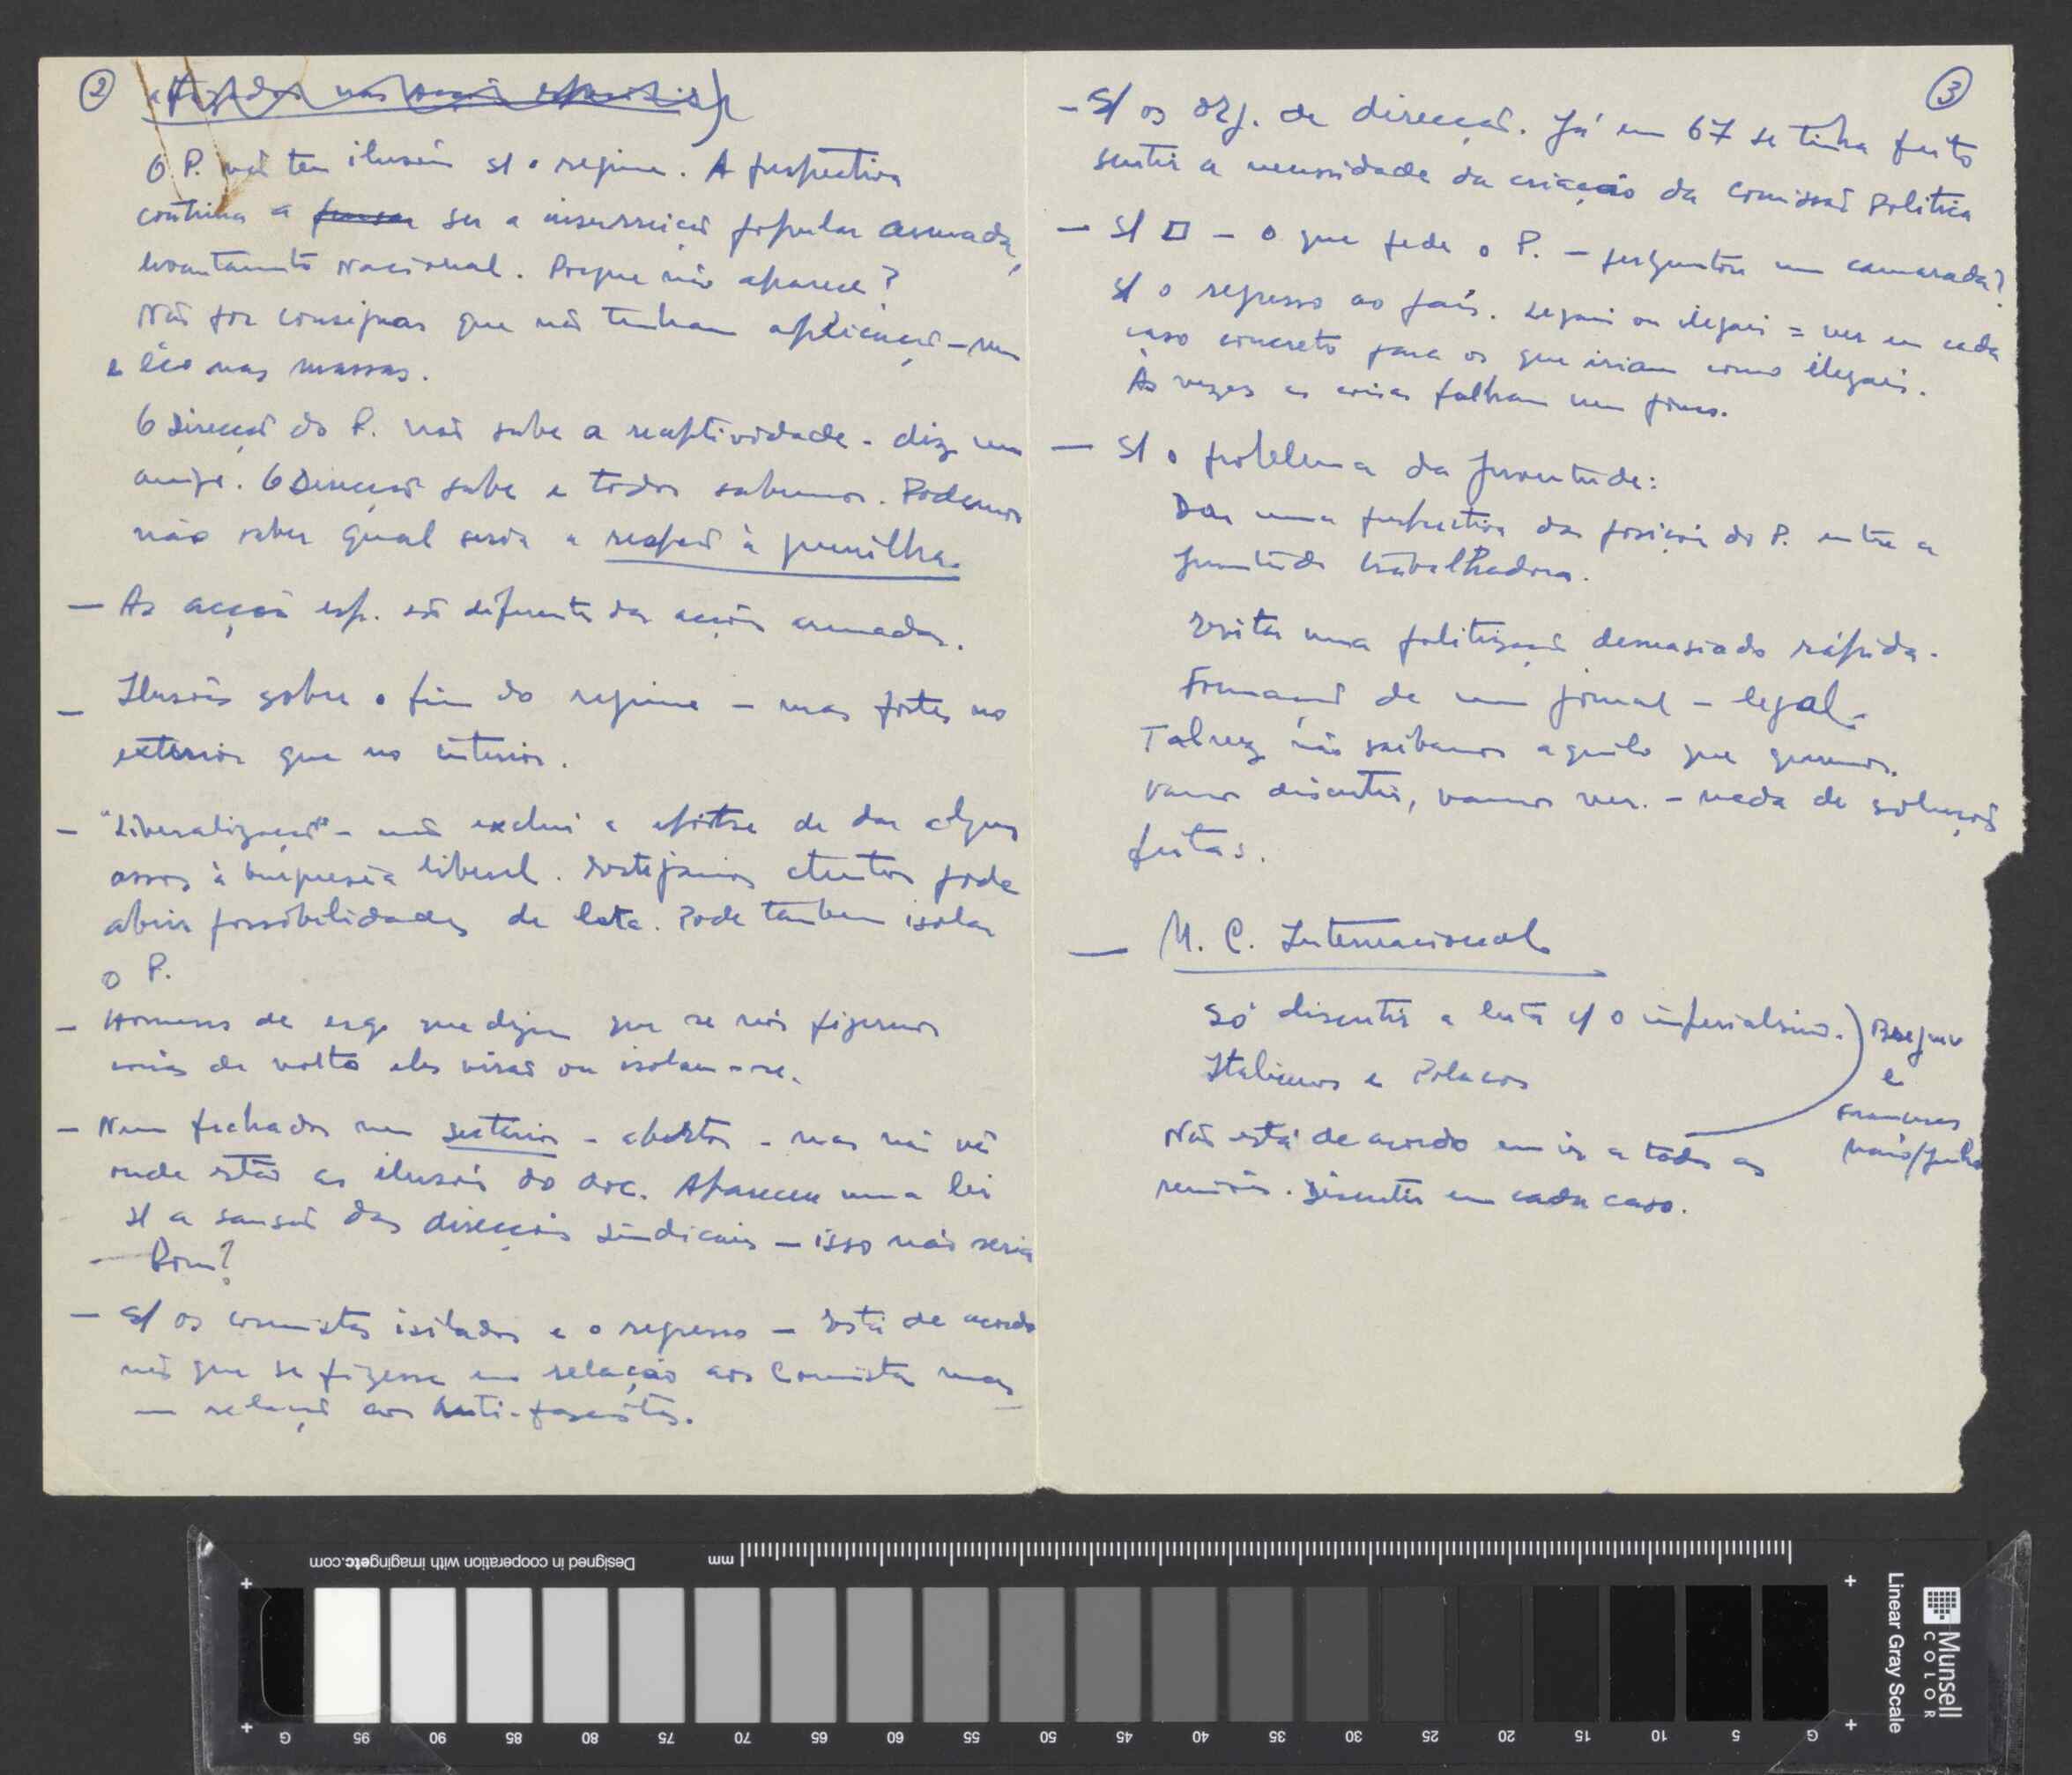 2
O P. não tem ilusões s/ o regime. A perspectiva
continua a pensar ser a insurreição popular armada,
levantamento Nacional. Porque não aparece?
Não por consignas que não tenham aplicação - nem
éco nas massas.
6 Direcção do P. não sabe a receptividade - diz um
amigo. 6 Direcção sabe e todos sabemos. Podemos
não saber qual seria a reacção à guerrilha.
— As acções esp. são diferentes das acções armadas.
— Ilusões sobre o fim do regime - mas fortes no
exterior que no interior.
— "Liberalização" - não exclui a hipótese de dar alguns
ossos à burguesia liberal. Estejamos atentos pode
abrir possibilidades de luta. Pode tambem isolar
o P.
— Homens de esqª que dizem que se nós fizermos
coisas de volta eles virão ou isolam-se.
— Nem fechados nem sectários - abertos - mas não vê
onde estão as ilusões do doc. Apareceu uma lei
s/ a sansão das direcções sindicais - isso não seria
bom?
— S/ os comunistas isolados e o regresso - Está de acordo
não que se fizesse em relação aos Comunistas mas
em relação aos Anti-fascistas.
3
— S/ os org. de direcção. Já em 67 se tinha feito
sentir a necessidade da criação da Comissão Politica
— S/ □ - o que pede o P. - perguntou um camarada?
S/ o regresso ao país. Legais ou ilegais = ver em cada
caso concreto para os que iriam como ilegais.
Às vezes as coisas falham num pouco.
— S/ o problema da Juventude:
Dar uma perspectiva das posições do P. entre a
Juventude trabalhadora.
Evitar uma politização demasiado rápida.
Formação de um jornal - legal.
Talvez não saibamos aquilo que queremos.
Vamos discutir, vamos ver. - nada de soluções
feitas.
— M. C. Internacional
Só discutir a luta c/ o imperialismo.
Italianos e Polacos
Não está de acordo em ir a todas as
reuniões. Discutir em cada caso.
e
Franceses
Maio/Junho
Designed in cooperation with imagingetc.com
mm
G 95 90 85 80 75 70 65 60 55 50 45 40 35 30 25 20 15 10 5 G
Linear Gray Scale
Munsell
COLOR